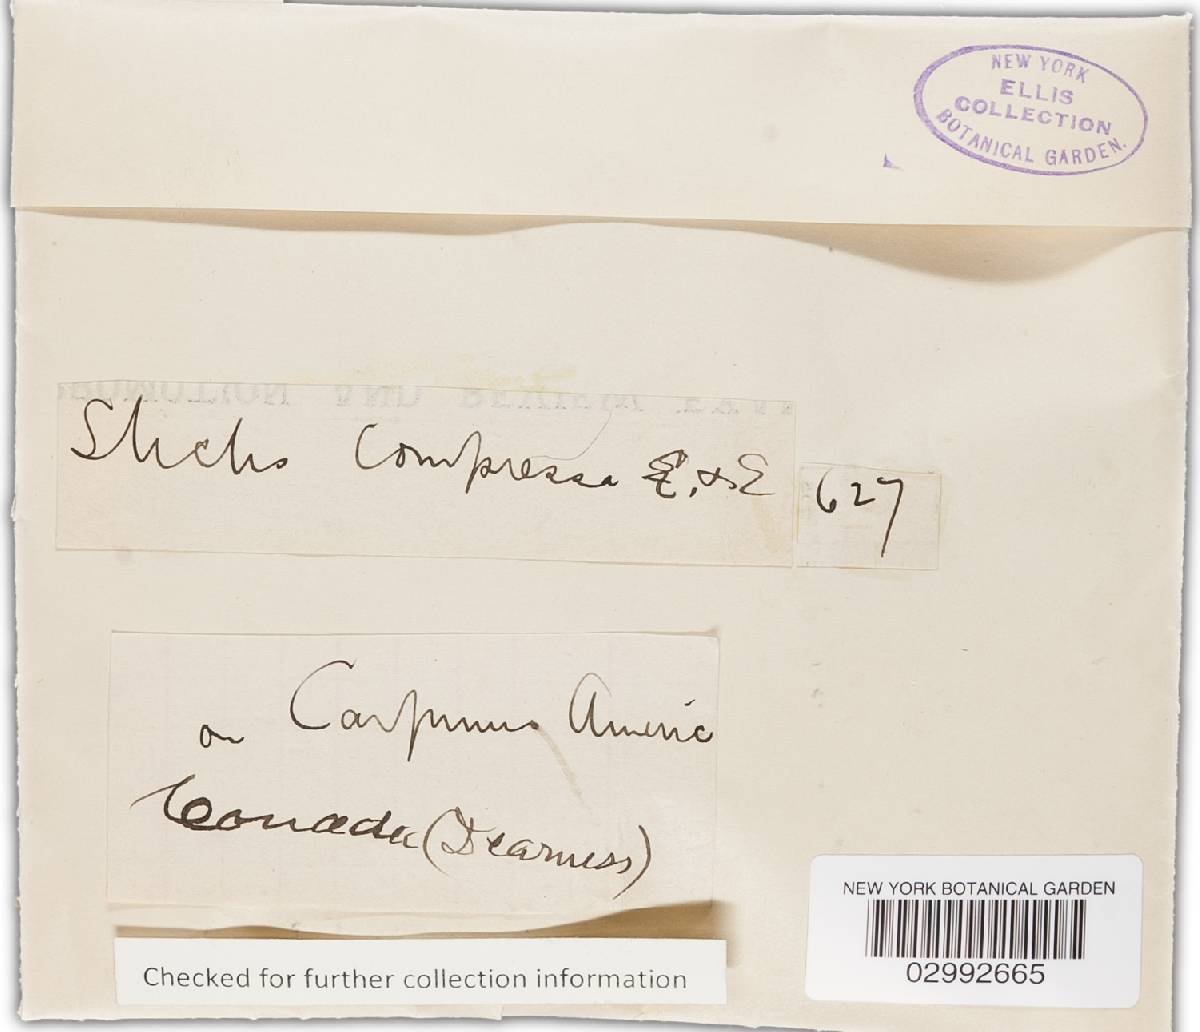 NEW YORK
ELLIS
COLLECTION
BOTANICAL GARDEN.
Stictis Compressa E. & E
627
on Carpinus Americ
Canada (Dearness)
Checked for further collection information
NEW YORK BOTANICAL GARDEN
02992665